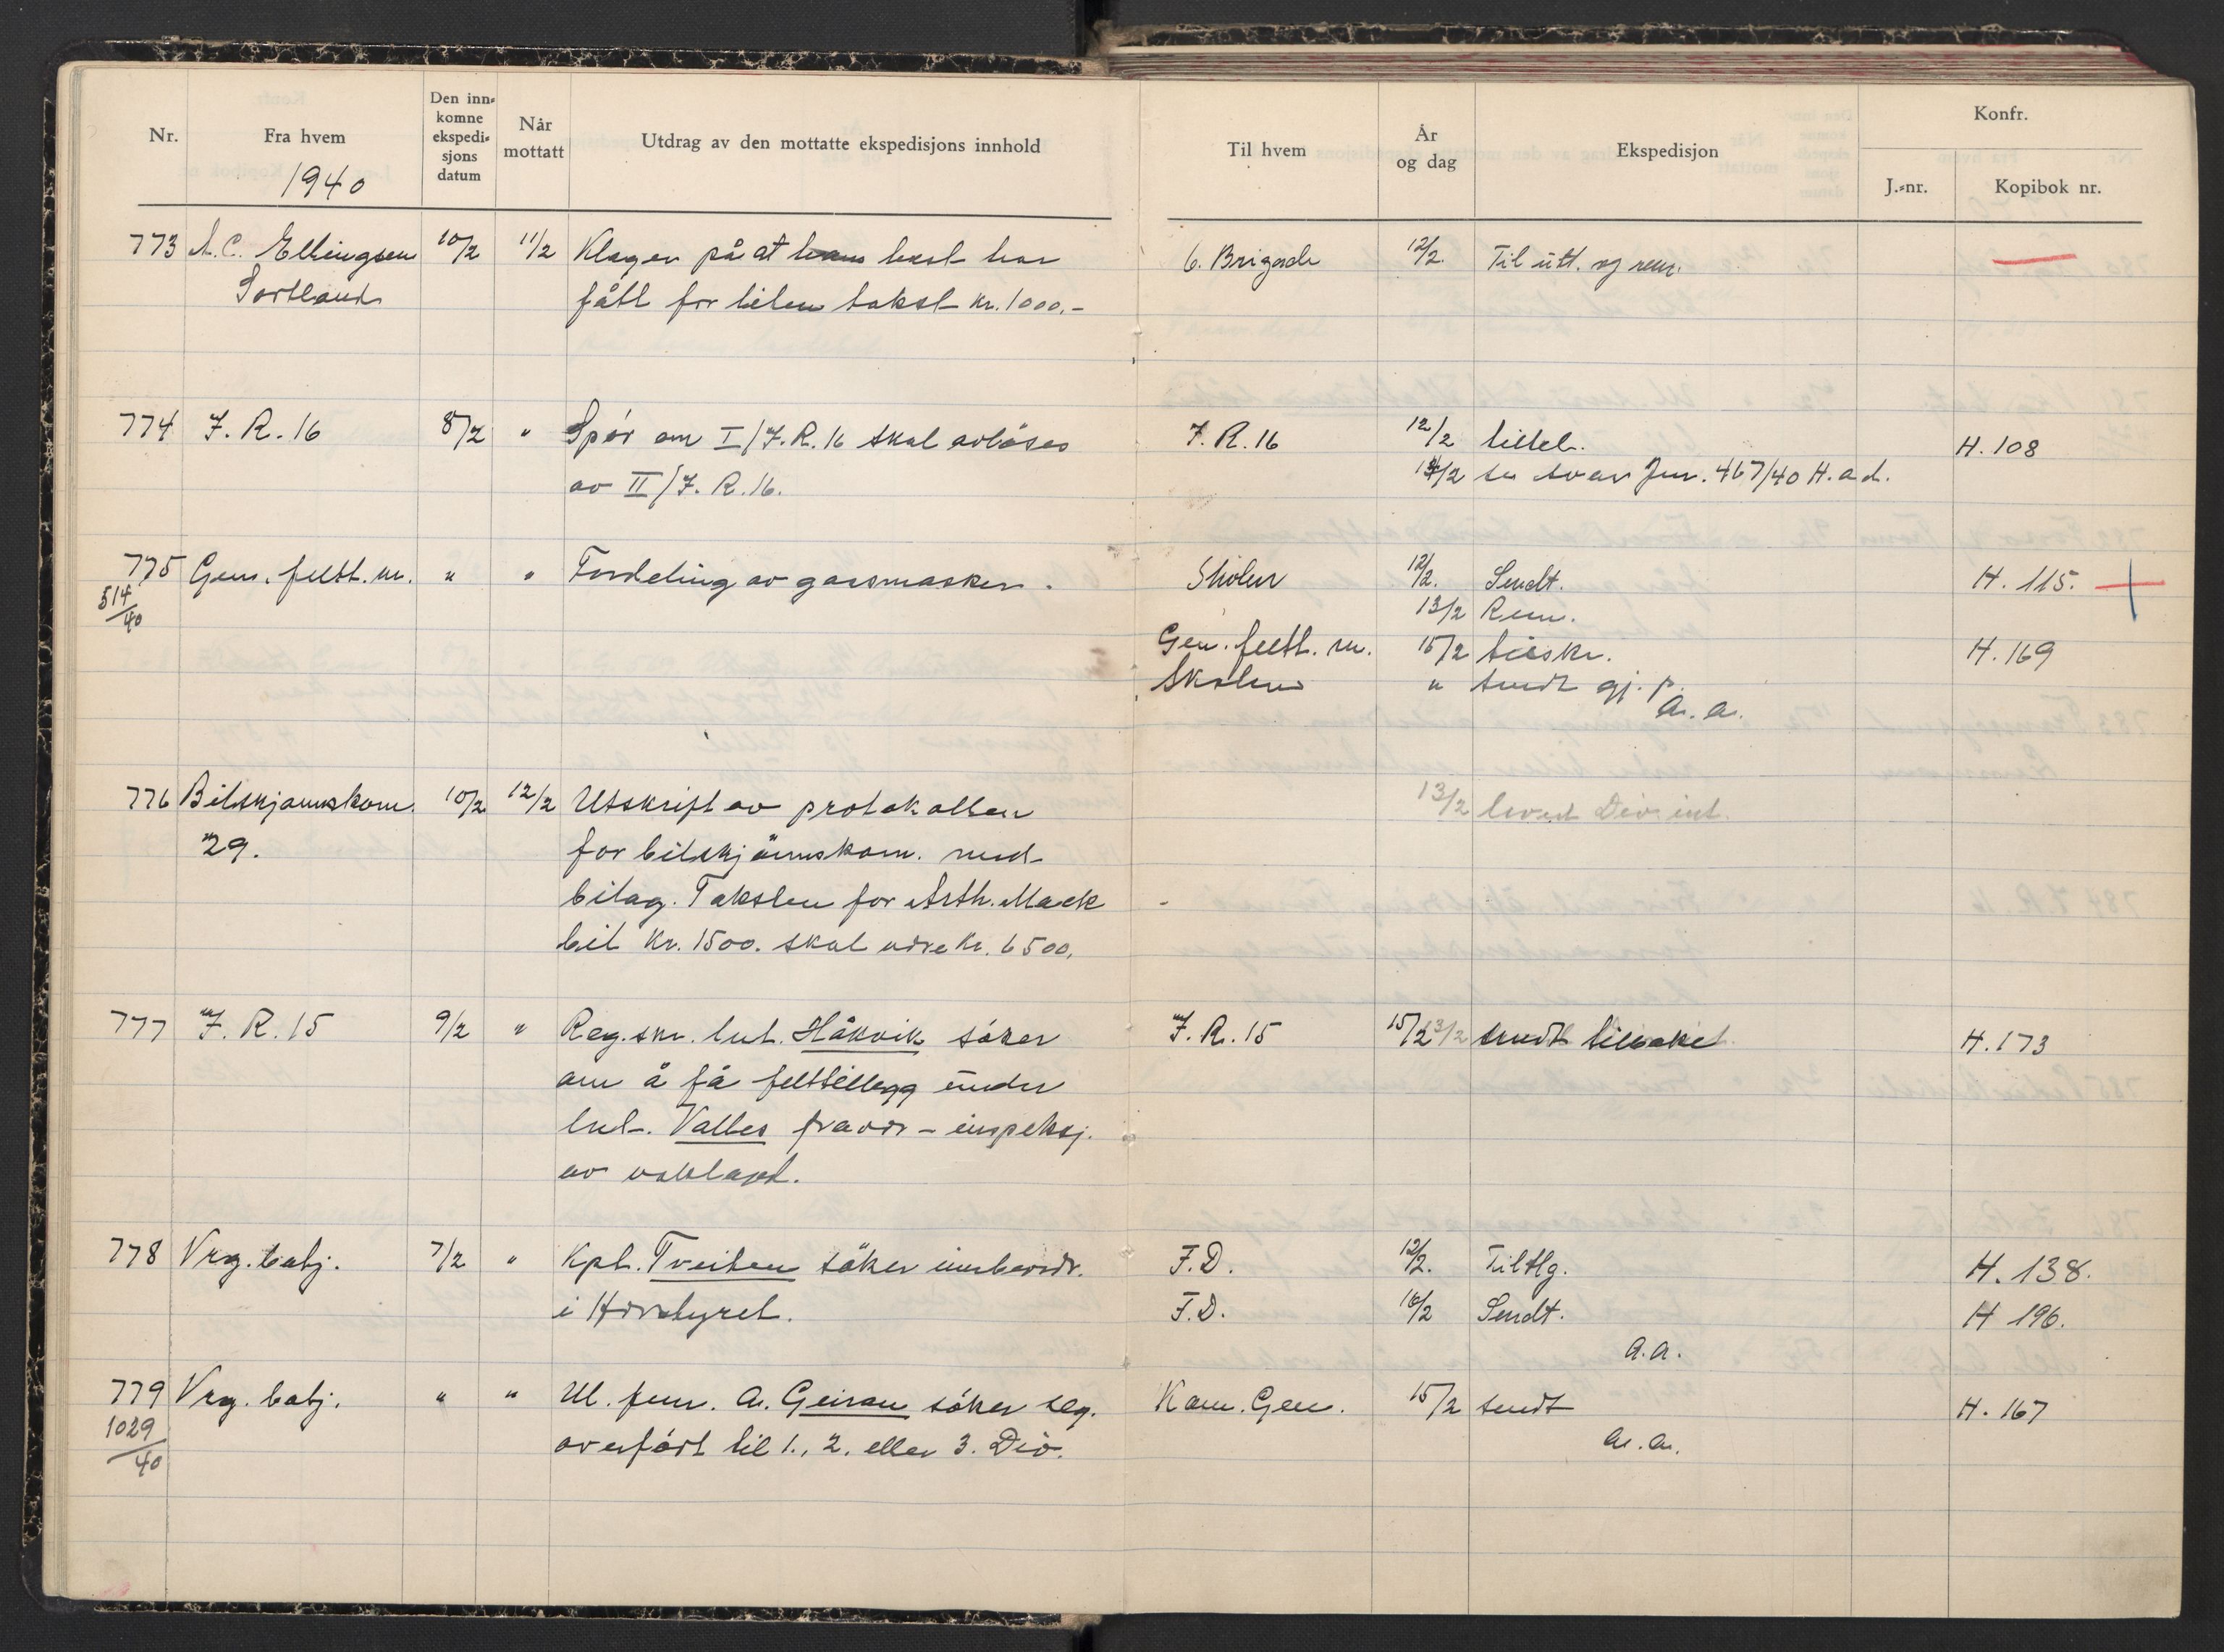 Nr.
Fra hvem
1940
Den inn-
komne
ekspedi-
sjons
datum
Når
mottatt
Utdrag av den mottatte ekspedisjons innhold
Til hvem
År
og dag
Ekspedisjon
Konfr.
J.-nr.
Kopibok nr.
773 A. C. Ellingsen 10/2 11/2 Klager på at hans hest har 6. Brigade 12/2. Til utt. og retur.
Sortland fått for liten takst kr. 1000.-
774 I. R. 16 8/2 " Spør om I/I.R. 16 skal avløses I. R. 16 12/2 H. 108
av II/I. R. 16. se svar Jnr. 467/40 H. a. d.
775 Gen. feltt. m. " " Fordeling av gassmasker. Skolen 12/2. Sendt. H. 115.
514/40 13/2 Retur.
Gen. feltt. m. 15/2 tilskr. H. 169
Skolen " sendt gj. p.
a. a.
776 Bilskjønnskom. 10/2 12/2 Utskrift av protokollen 13/2 levert Div. int.
29. for bilskjønnskom. med
bilag. Taksten for Arth. Mack
bil kr. 1500. skal være kr. 6500.
777 I. R. 15 9/2 " Reg. skr. lut. Håkvik søker I. R. 15 15/2 13/2 sendt tilbake H. 173
om å få felttillegg under
lut. Valles fravær - inspeksj.
av
778 Vrg. batj. 7/2 " Kpt. Tveiten søker innbeordr. F.D. 12/2. Tilstlg. H. 138.
i Hærstyret. F.D. 16/2 Sendt. H 196.
a. a.
779 Vrg. batj. " " Ul. fenr. A. Geiran søker seg Kom. Gen. 15/2 sendt H. 167
1029/40 overført til 1., 2. eller 3. Div. a. a.